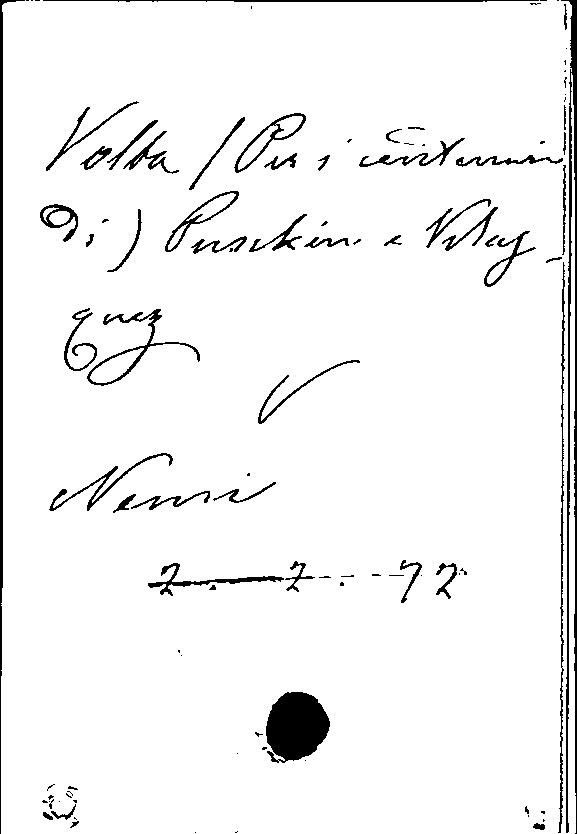 Volba / Per i centenari
di) Puschin e Velaz-
quez
V
Nemi
2. 2. 72